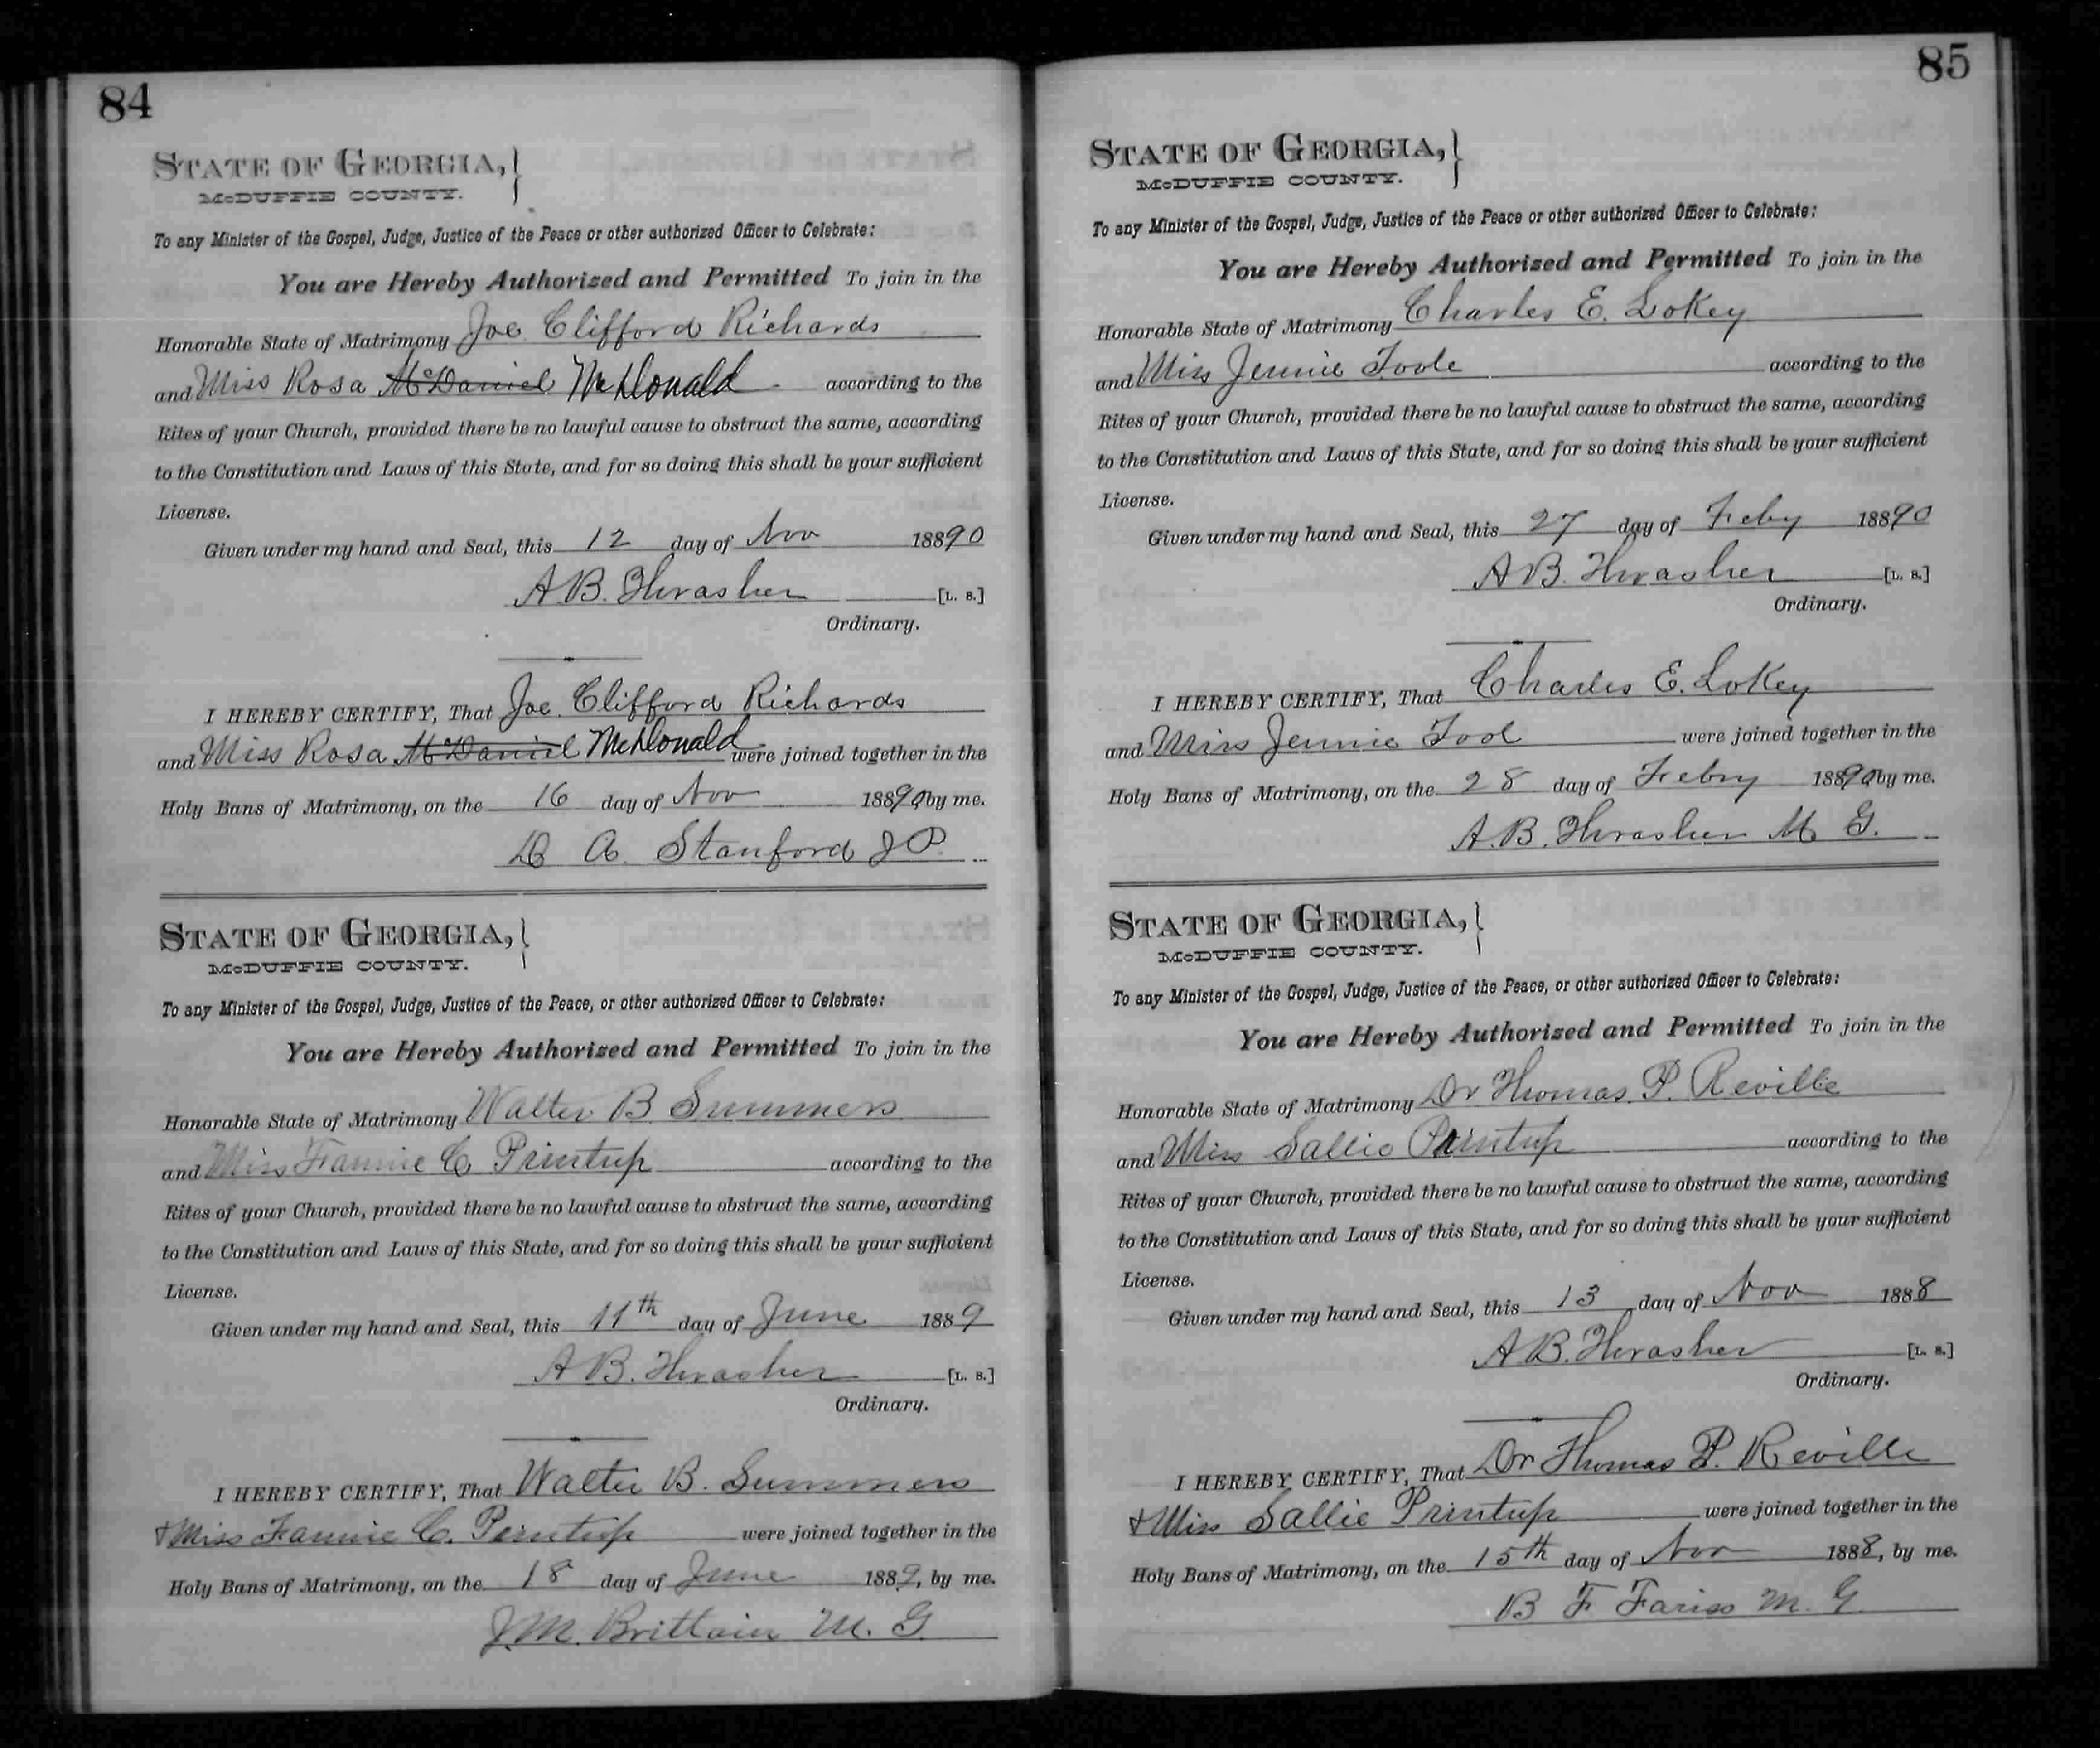 84
STATE OF GEORGIA,
McDUFFIE COUNTY.
To any Minister of the Gospel, Judge, Justice of the Peace or other authorized Officer to Celebrate:
You are Hereby Authorized and Permitted To join in the
Honorable State of Matrimony Joe Clifford Richards
and Miss Rosa McDaniel McDonald according to the
Rites of your Church, provided there be no lawful cause to obstruct the same, according
to the Constitution and Laws of this State, and for so doing this shall be your sufficient
License.
Given under my hand and Seal, this 12 day of Nov 18890
A.B. Thrasher [L. S.]
Ordinary.
I HEREBY CERTIFY, That Joe Clifford Richards
and Miss Rosa McDaniel McDonald were joined together in the
Holy Bans of Matrimony, on the 16 day of Nov 18890 by me.
A. Stanford J P
STATE OF GEORGIA,
McDUFFIE COUNTY.
To any Minister of the Gospel, Judge, Justice of the Peace, or other authorized Officer to Celebrate:
You are Hereby Authorized and Permitted To join in the
Honorable State of Matrimony Walter B Summers
and Miss Fannie C Printup according to the
Rites of your Church, provided there be no lawful cause to obstruct the same, according
to the Constitution and Laws of this State, and for so doing this shall be your sufficient
License.
Given under my hand and Seal, this 11th day of June 1889
A B. Thrasher [L. S.]
Ordinary.
I HEREBY CERTIFY, That Walter B. Summers
& Miss Fannie C. Printup were joined together in the
Holy Bans of Matrimony, on the 18 day of June 1889, by me.
J.M. Brittain M. G.
85
STATE OF GEORGIA,
McDUFFIE COUNTY.
To any Minister of the Gospel, Judge, Justice of the Peace or other authorized Officer to Celebrate:
You are Hereby Authorized and Permitted To join in the
Honorable State of Matrimony Charles E. Lokey
and Miss Jennie Toole according to the
Rites of your Church, provided there be no lawful cause to obstruct the same, according
to the Constitution and Laws of this State, and for so doing this shall be your sufficient
License.
Given under my hand and Seal, this 27 day of Feby 18890
A B. Thrasher [L. S.]
Ordinary.
I HEREBY CERTIFY, That Charles E. Lokey
and Miss Jennie Tool were joined together in the
Holy Bans of Matrimony, on the 28 day of Febry 18890 by me.
A.B. Thrasher M G.
STATE OF GEORGIA,
McDUFFIE COUNTY.
To any Minister of the Gospel, Judge, Justice of the Peace, or other authorized Officer to Celebrate:
You are Hereby Authorized and Permitted To join in the
Honorable State of Matrimony Dr Thomas P. Reville
and Miss Sallie Printup according to the
Rites of your Church, provided there be no lawful cause to obstruct the same, according
to the Constitution and Laws of this State, and for so doing this shall be your sufficient
License.
Given under my hand and Seal, this 13 day of Nov 1888
A B. Thrasher [L. S.]
Ordinary.
I HEREBY CERTIFY, That Dr Thomas P. Reville
& Miss Sallie Printup were joined together in the
Holy Bans of Matrimony, on the 15th day of Nov 1888, by me.
B F Fariss M. G.